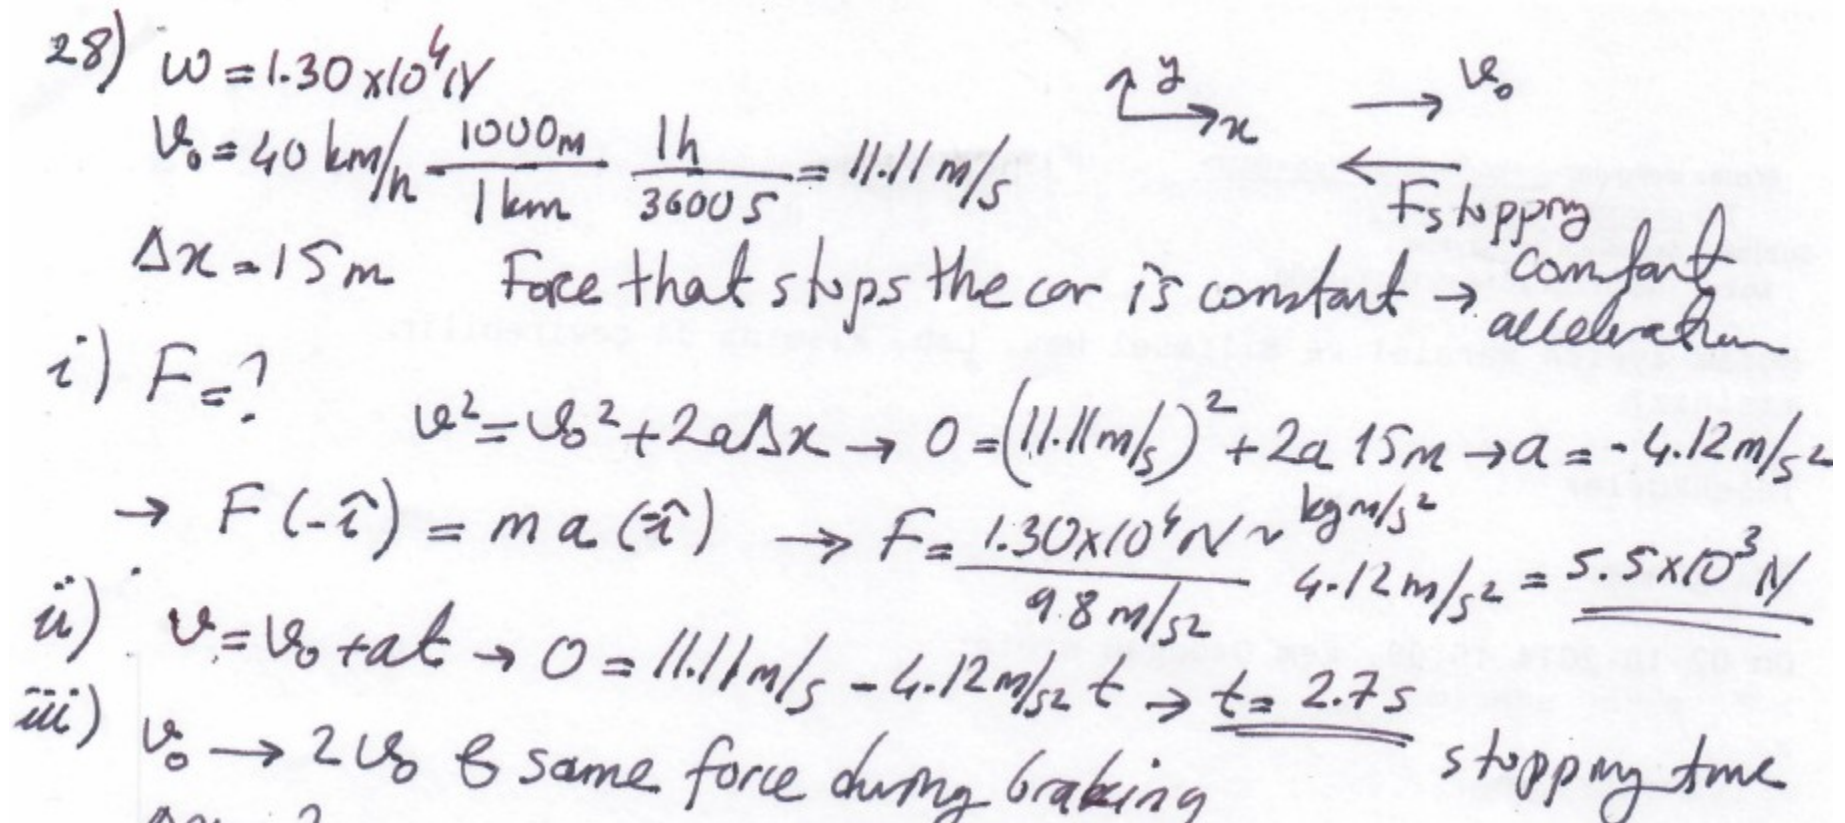 28) W = 1.30×10⁴ N
y
x
v₀
v₀ = 40 km/h 1000m/1km 1h/3600s = 11.11 m/s
F stopping
Δx = 15m Force that stops the car is constant → constant acceleration
i) F = ?
v² = v₀² + 2aΔx → 0 = (11.11m/s)² + 2a 15m → a = -4.12m/s²
→ F (-î) = m a (-î) → F = 1.30×10⁴ N ~ kgm/s² / 9.8 m/s² 4.12m/s² = 5.5×10³ N
ii) v = v₀ + at → 0 = 11.11m/s - 4.12m/s² t → t = 2.7s
stopping time
iii) v₀ → 2v₀ & same force during braking